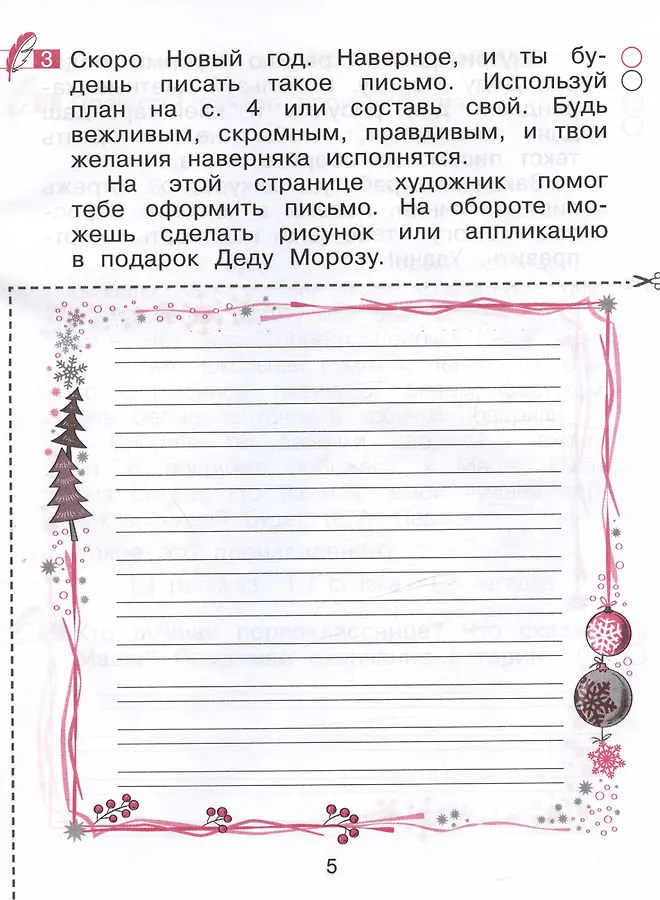 3 Скоро Новый год. Наверное, и ты бу-
дешь писать такое письмо. Используй
план на с. 4 или составь свой. Будь
вежливым, скромным, правдивым, и твои
желания наверняка исполнятся.
На этой странице художник помог
тебе оформить письмо. На обороте мо-
жешь сделать рисунок или аппликацию
в подарок Деду Морозу.
5